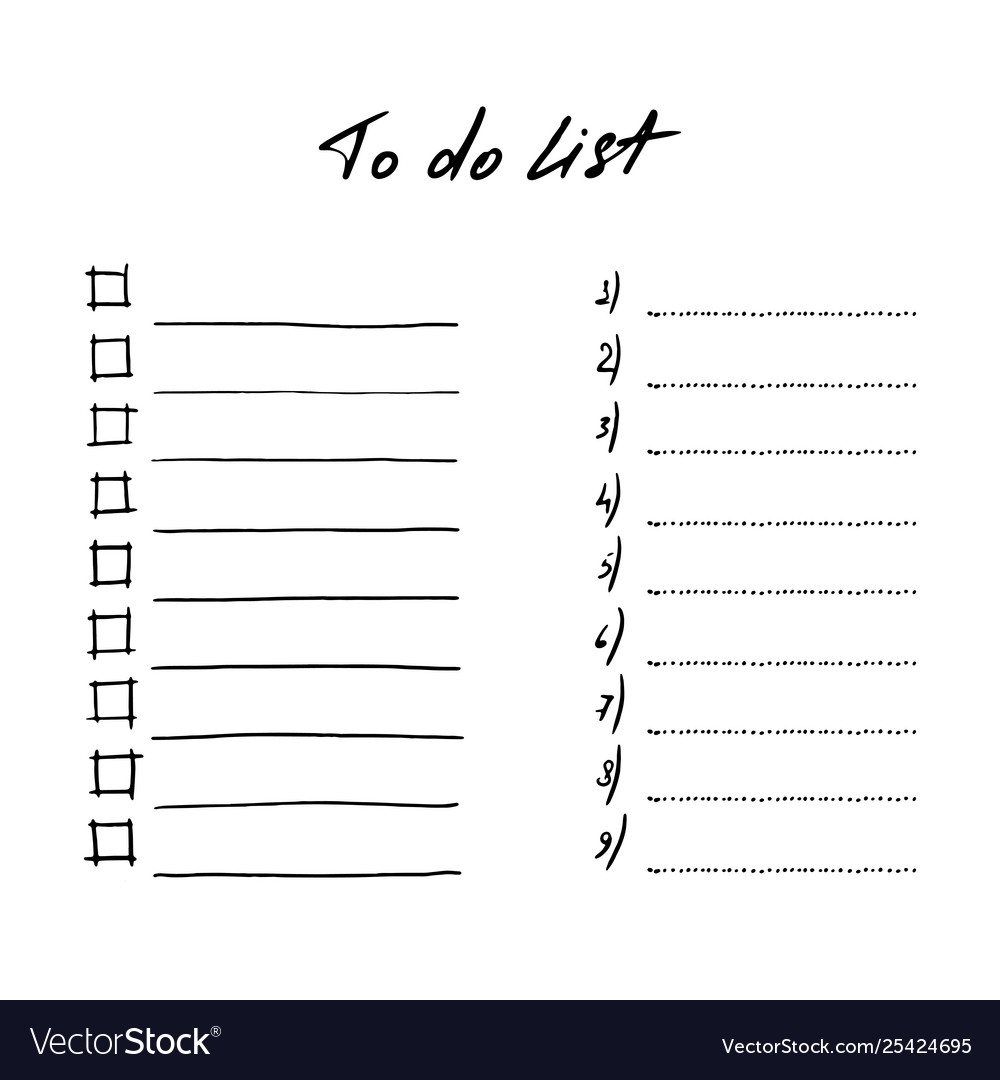 To do List
1)
2)
3)
4)
5)
6)
7)
8)
9)
VectorStock®
VectorStock.com/25424695